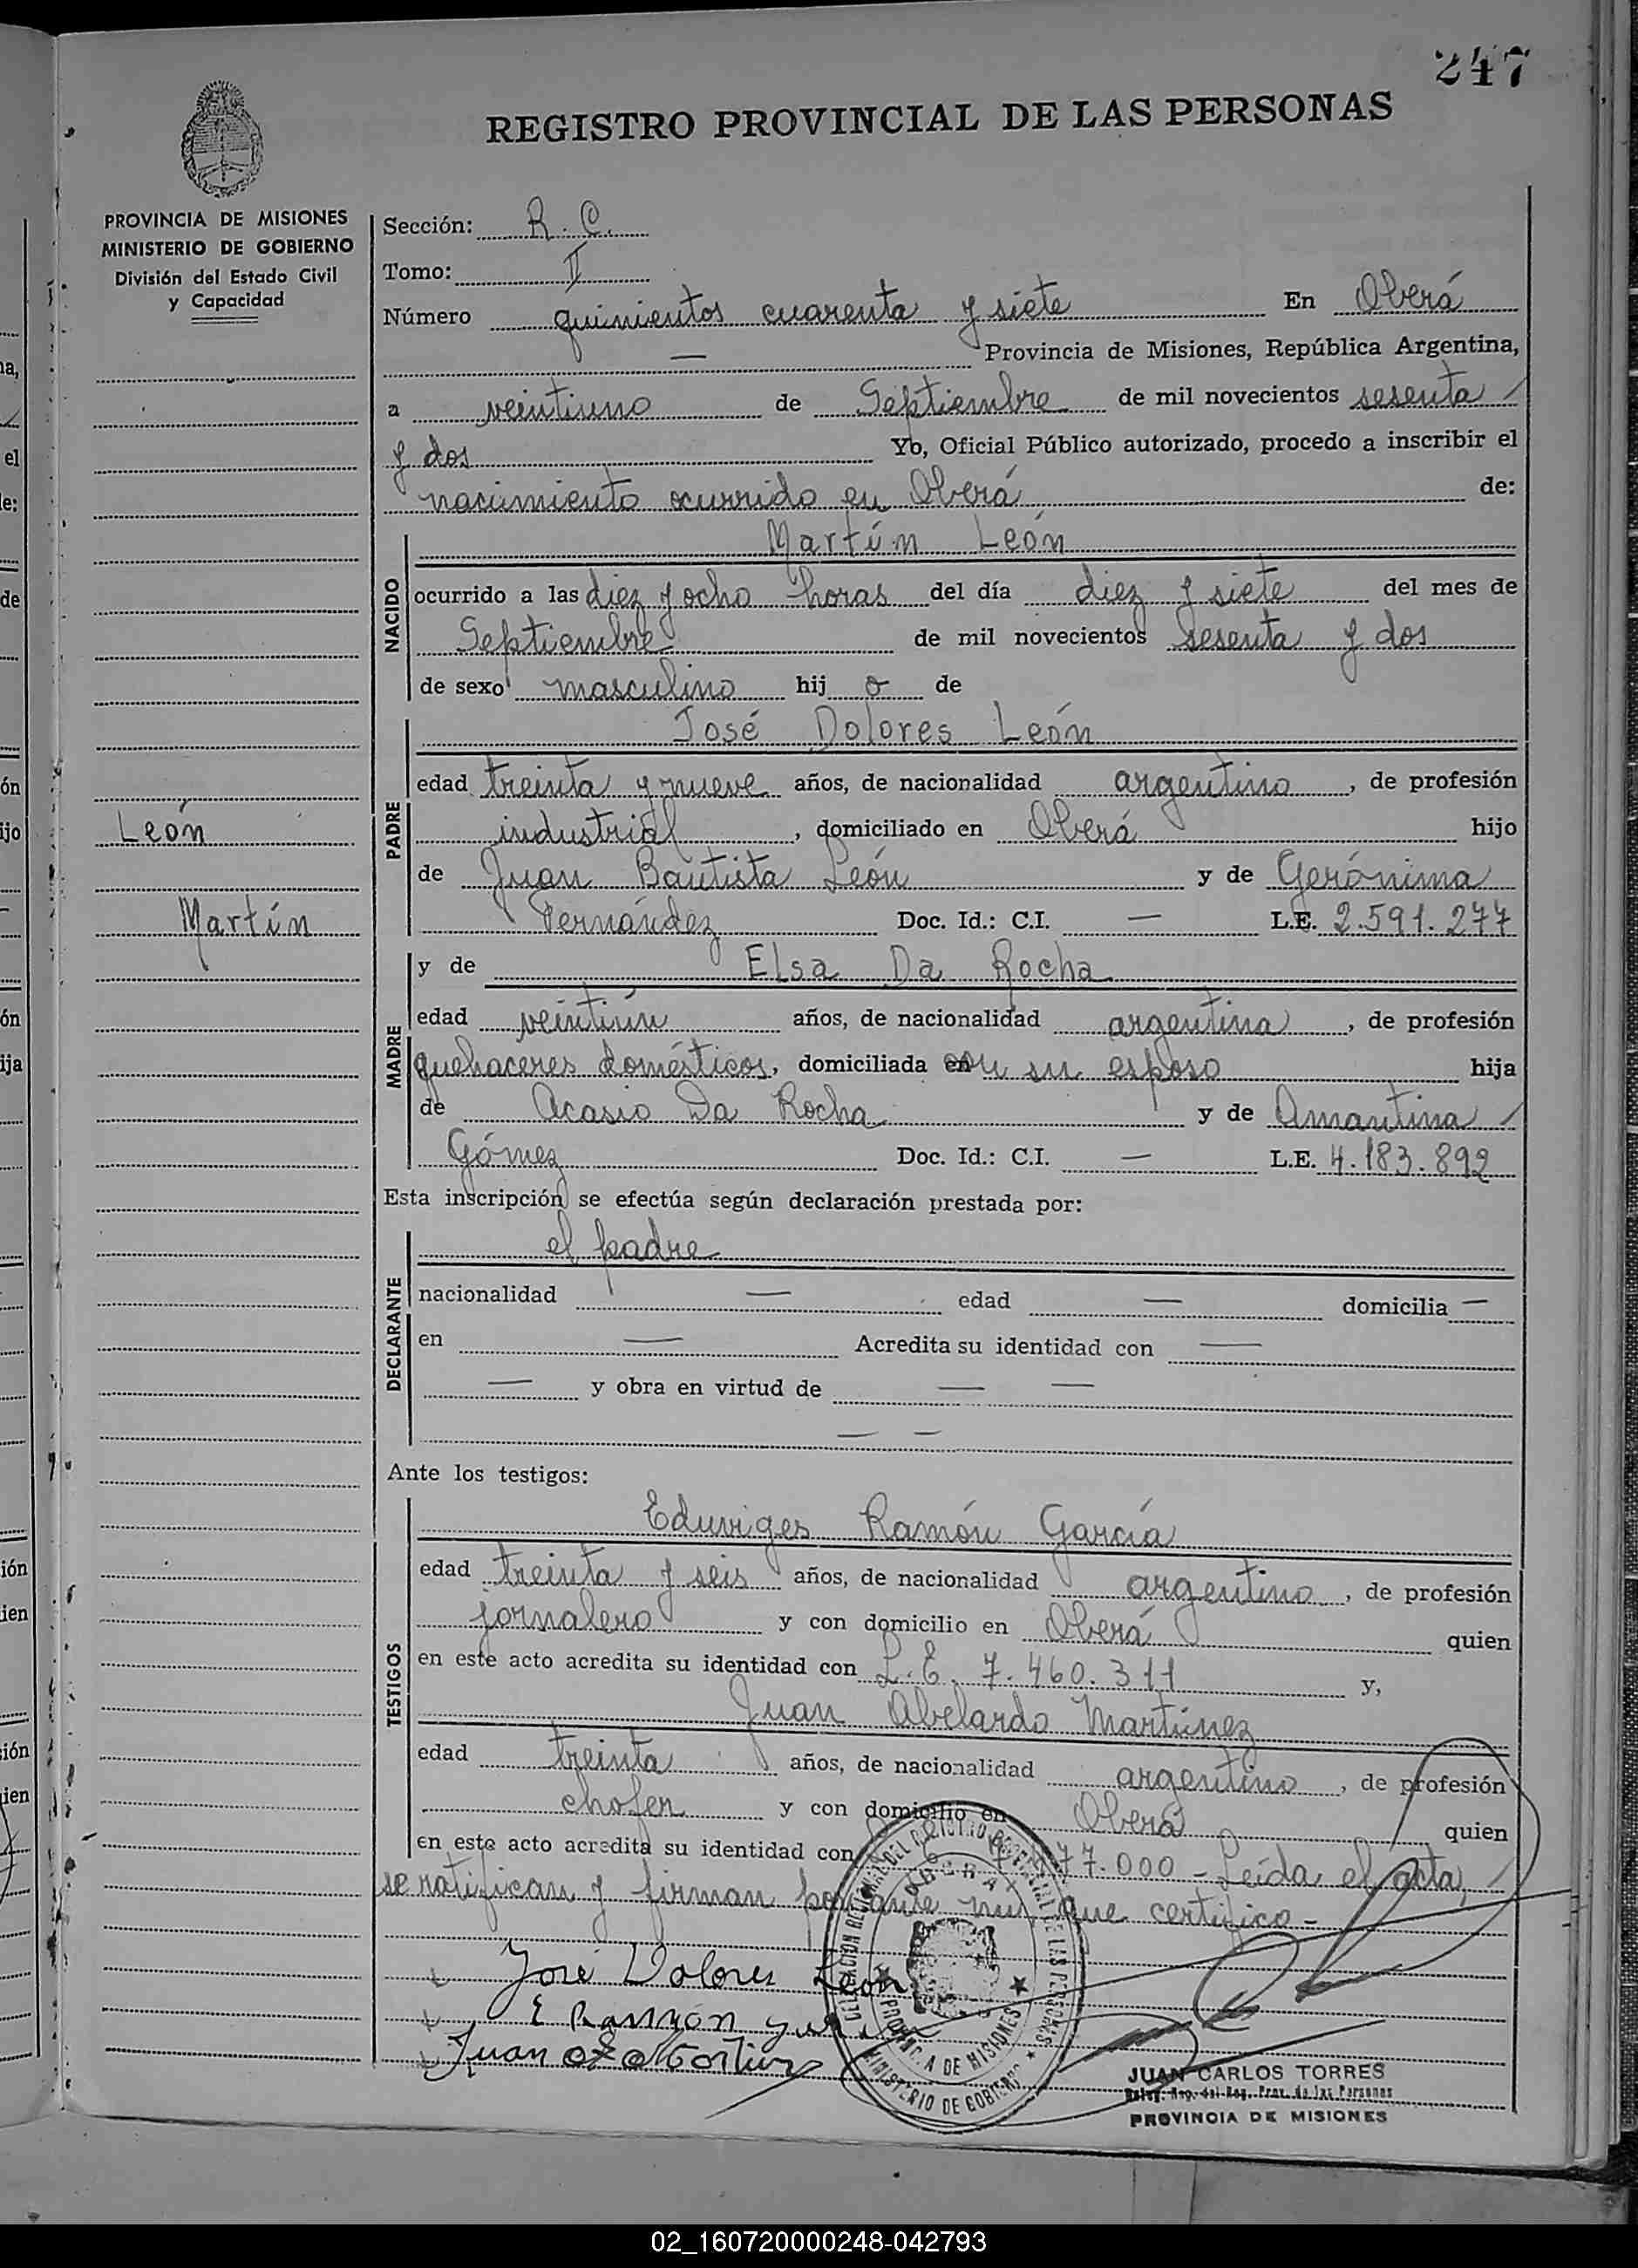 247
REGISTRO PROVINCIAL DE LAS PERSONAS
PROVINCIA DE MISIONES
MINISTERIO DE GOBIERNO
División del Estado Civil
y Capacidad
León
Martín
Sección: R. C.
Tomo: II
Número quinientos cuarenta y siete En Oberá
— Provincia de Misiones, República Argentina,
a veintiuno de Septiembre de mil novecientos sesenta
y dos Yo, Oficial Público autorizado, procedo a inscribir el
nacimiento ocurrido en Oberá de:
NACIDO
Martín León
ocurrido a las diez y ocho horas del día diez y siete del mes de
Septiembre de mil novecientos sesenta y dos
de sexo masculino hij o de
PADRE
José Dolores León
edad treinta y nueve años, de nacionalidad argentino, de profesión
industrial, domiciliado en Oberá hijo
de Juan Bautista León y de Gerónima
Fernández Doc. Id.: C.I. — L.E. 2.591.277
MADRE
y de Elsa Da Rocha
edad veintiún años, de nacionalidad argentina, de profesión
quehaceres domésticos, domiciliada con su esposo hija
de Acasio Da Rocha y de Amantina
Gómez Doc. Id.: C.I. — L.E. 4.183.892
Esta inscripción se efectúa según declaración prestada por:
DECLARANTE
el padre
nacionalidad — edad — domicilia —
en — Acredita su identidad con —
— y obra en virtud de — —
— —
Ante los testigos:
TESTIGOS
Eduviges Ramón García
edad treinta y seis años, de nacionalidad argentino, de profesión
jornalero y con domicilio en Oberá quien
en este acto acredita su identidad con L.E. 7.460.311 y,
Juan Abelardo Martínez
edad treinta años, de nacionalidad argentino, de profesión
chofer y con domicilio en Oberá quien
en este acto acredita su identidad con 77.000 - Leída el acta,
se ratifican y firman por ante mí, que certifico -
José Dolores León
E Ramón
Juan
OBERA
PROVINCIA DE MISIONES
MINISTERIO DE GOBIERNO
JUAN CARLOS TORRES
Reg. Prov. de las Personas
PROVINCIA DE MISIONES
02_160720000248-042793